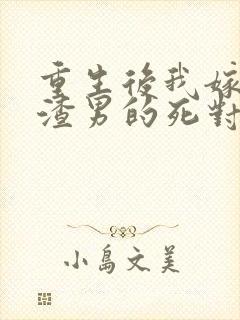 重生後我嫁
渣男的死對
小島文美